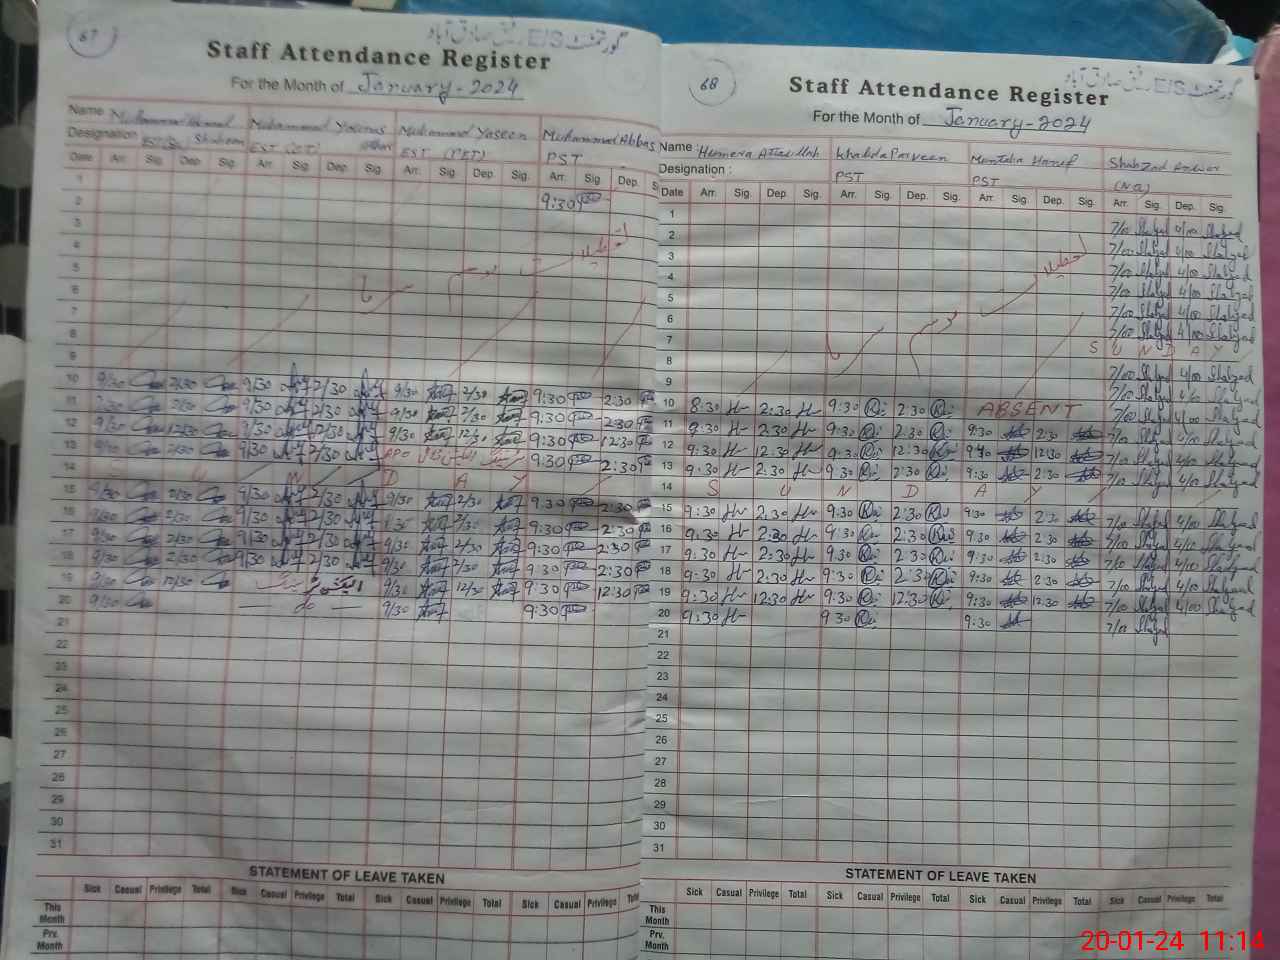 67
گورنمنٹ E/S رفیق صادق آباد
Staff Attendance Register
For the Month of January-2024
Name Muhammad Ahmad Muhammad Younas Muhammad Yaseen Muhammad Abbas
Designation EST Shaheen EST EST (PET) PST
Date Arr. Sig. Dep. Sig. Arr. Sig. Dep. Sig. Arr. Sig. Dep. Sig. Arr. Sig. Dep. S
1
2 9:30
3
4
5
6
7
8
9
10 9/30 2/30 9/30 2/30 9/30 2/30 9:30 2:30
11 9/30 2/30 9/30 2/30 9/30 2/30 9:30 2:30
12 9/30 12/30 9/30 12/30 9/30 12/30 9:30 12:30
13 9/30 2/30 9/30 2/30 9:30 2:30
14 S U N D A Y
15 9/30 2/30 9/30 2/30 9/30 2/30 9:30 2:30
16 9/30 2/30 9/30 2/30 2/30 9:30 2:30
17 9/30 2/30 9/30 2/30 9/30 2/30 9:30 2:30
18 9/30 2/30 9/30 2/30 9/30 2/30 9:30 2:30
19 9/30 12/30 9/30 12/30 9:30 12:30
20 9/30 do 9/30 9:30
21
22
23
24
25
26
27
28
29
30
31
STATEMENT OF LEAVE TAKEN
Sick Casual Privilege Total Sick Casual Privilege Total Sick Casual Privilege Total Sick Casual Privilege Total
This Month
Prv. Month
68
گورنمنٹ E/S رفیق صادق آباد
Staff Attendance Register
For the Month of January-2024
Name : Humera Attaullah Khalida Parveen Hanif Shahzad Anwar
Designation : PST PST (NQ)
Date Arr. Sig. Dep. Sig. Arr. Sig. Dep. Sig. Arr. Sig. Dep. Sig. Arr. Sig. Dep. Sig.
1 7/00 Shahzad 4/00 Shahzad
2 7/00 Shahzad 4/00 Shahzad
3 7/00 Shahzad 4/00 Shahzad
4 7/00 Shahzad 4/00 Shahzad
5 7/00 Shahzad 4/00 Shahzad
6 7/00 Shahzad 4/00 Shahzad
7 S U N D A Y
8 7/00 Shahzad 4/00 Shahzad
9 7/00 Shahzad 4/00 Shahzad
10 8:30 2:30 9:30 2:30 ABSENT 7/00 Shahzad 4/00 Shahzad
11 9:30 2:30 9:30 2:30 9:30 2:30 7/00 Shahzad 4/00 Shahzad
12 9:30 12:30 9:30 12:30 9:30 12:30 7/00 Shahzad 4/00 Shahzad
13 9:30 2:30 9:30 2:30 9:30 2:30 7/00 Shahzad 4/00 Shahzad
14 S U N D A Y
15 9:30 2:30 9:30 2:30 9:30 2:30 7/00 Shahzad 4/00 Shahzad
16 9:30 2:30 9:30 2:30 9:30 2:30 7/00 Shahzad 4/00 Shahzad
17 9:30 2:30 9:30 2:30 9:30 2:30 7/00 Shahzad 4/00 Shahzad
18 9:30 2:30 9:30 2:30 9:30 2:30 7/00 Shahzad 4/00 Shahzad
19 9:30 12:30 9:30 12:30 9:30 12:30 7/00 Shahzad 4/00 Shahzad
20 9:30 9 30 9:30 7/00 Shahzad
21
22
23
24
25
26
27
28
29
30
31
STATEMENT OF LEAVE TAKEN
Sick Casual Privilege Total Sick Casual Privilege Total Sick Casual Privilege Total Sick Casual Privilege Total
This Month
Prv. Month
20-01-24 11:14